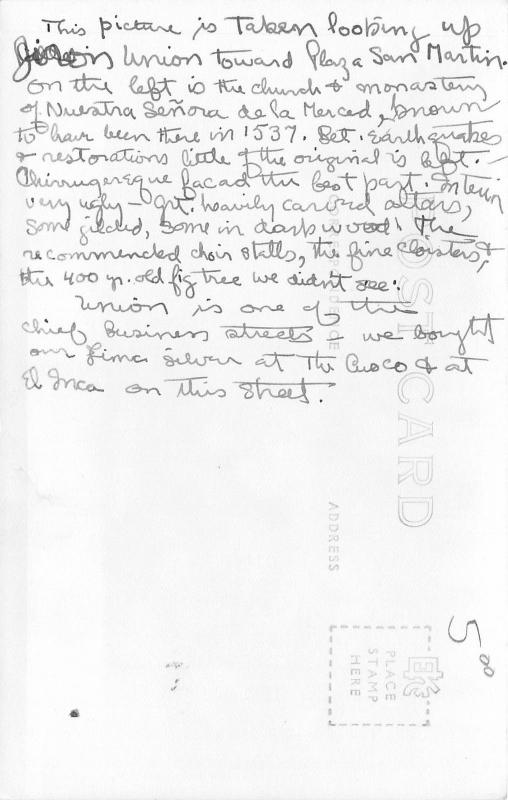 This picture is Taken looking up
Jiron Union toward Plaza San Martin.
on the left is the church & monastery
of Nuestra Señora de la Merced, known
to have been there in 1537. Bet. earthquakes
& restorations little of the original is left.
Chirrugeresque facad the best part. Interior
very ugly – grt. heavily carved altars,
some gilded, some in dark wood. The
recommended choir stalls, the fine cloisters, &
the 400 yr. old fig tree we didn't see.
Union is one of the
chief business streets & we bought
our Lima silver at The Cuzco & at
El Inca on this street.
POST CARD
CORRESPONDENCE
ADDRESS
PLACE
STAMP
HERE
EKC
5.00